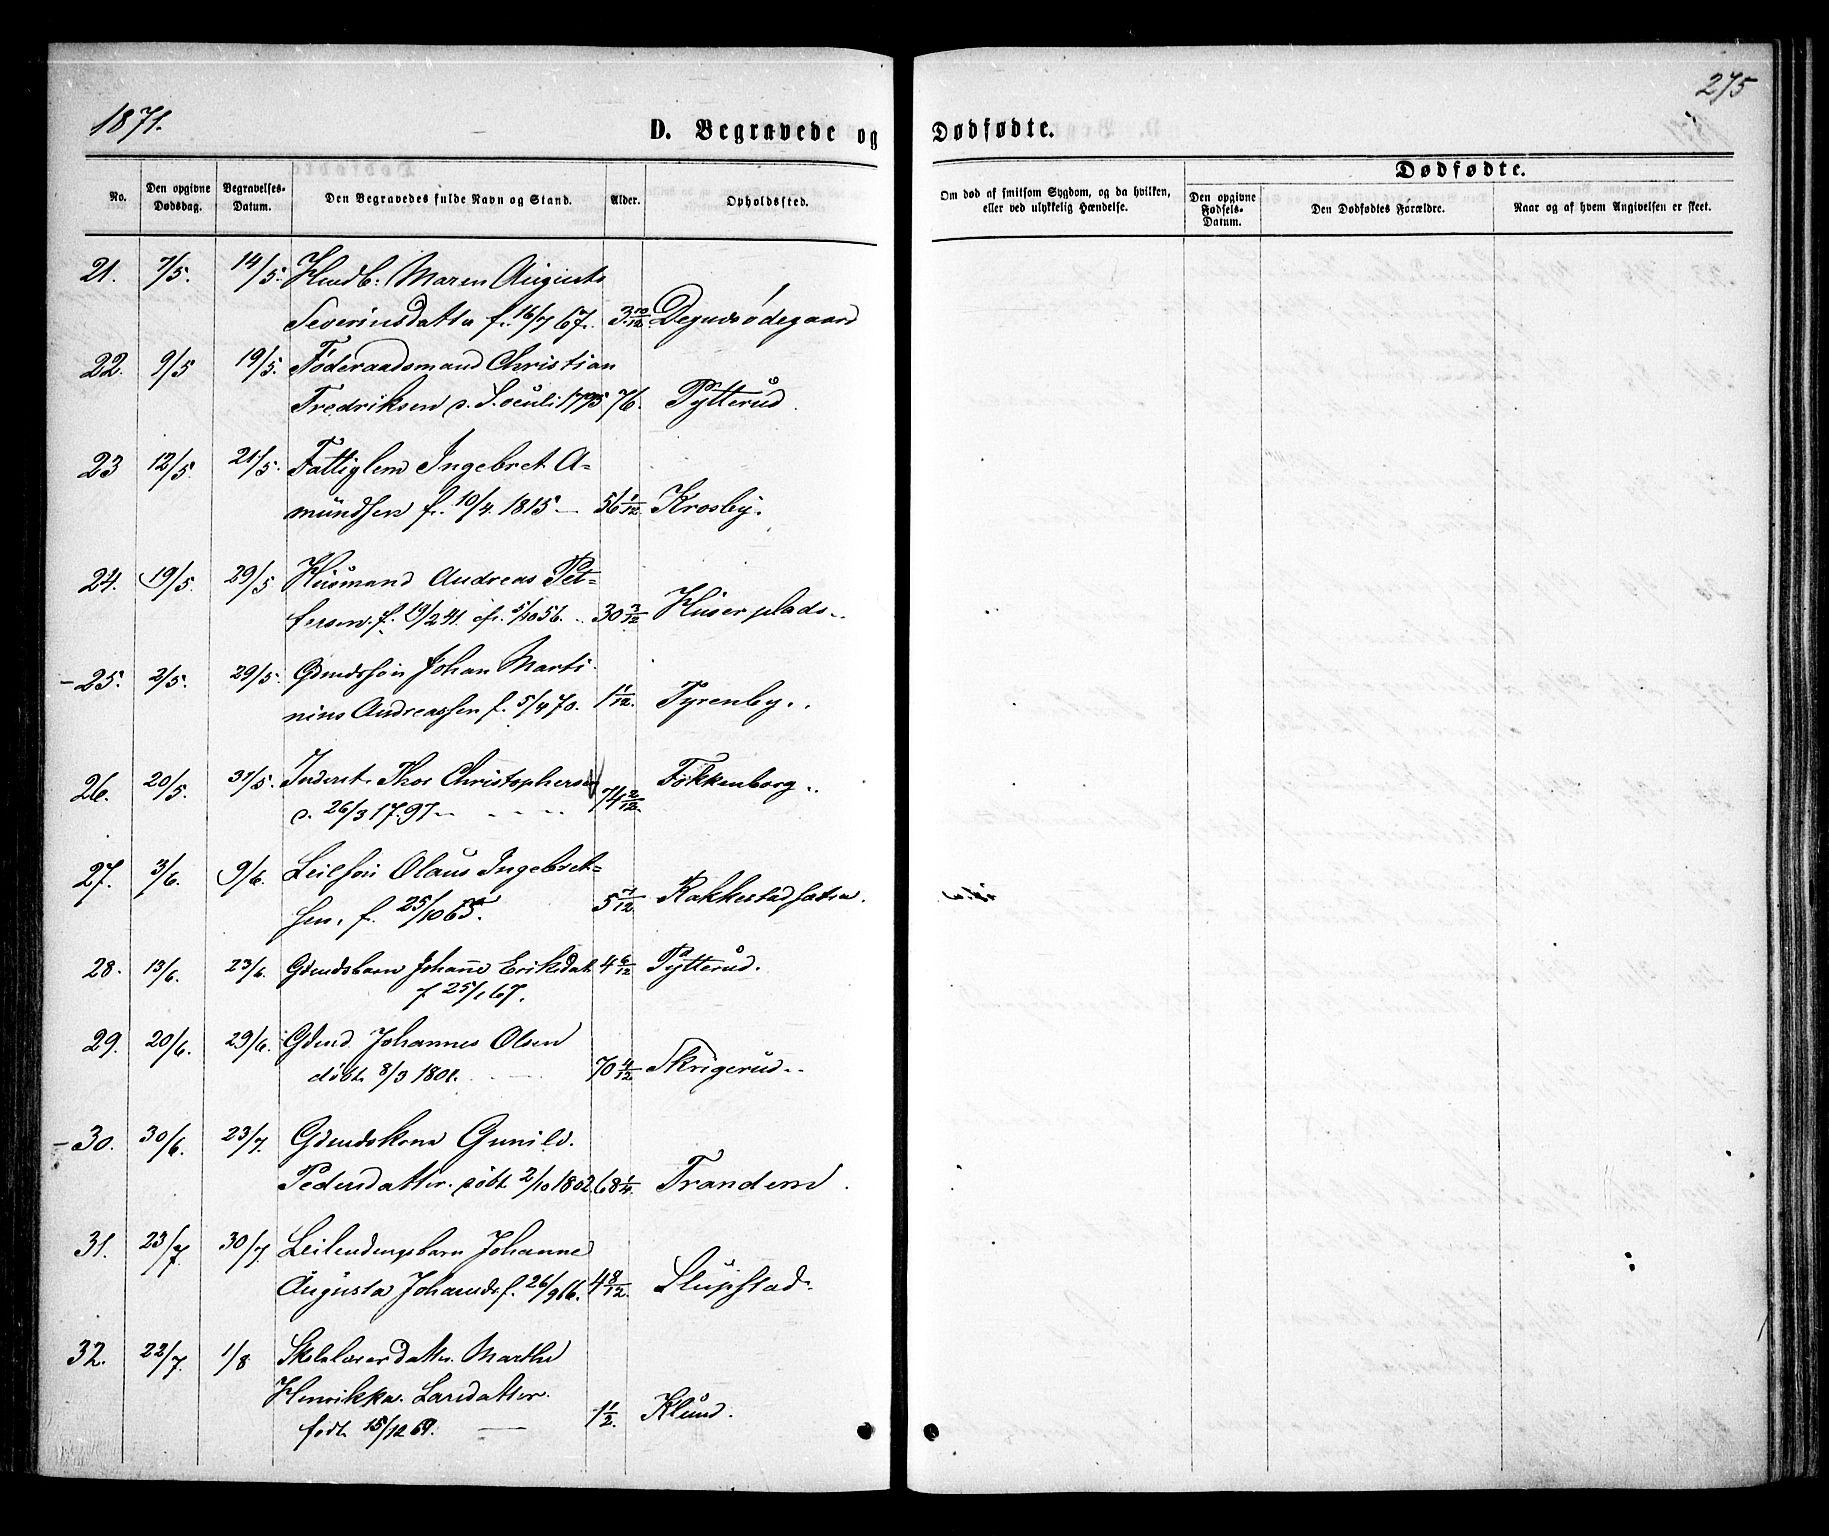 275
1871.
D. Begravede og Dødfødte.
No. Den opgivne Dødsdag. Begravelses-Datum. Den Begravedes fulde Navn og Stand. Alder. Opholdssted.
Om død af smitsom Sygdom, og da hvilken, eller ved ulykkelig Hændelse.
Dødfødte.
Den opgivne Fødsels-Datum. Den Dødfødtes Forældre. Naar og af hvem Angivelsen er skeet.
21. 7/5. 14/5. Husmb: Maren Augusta
Severinsdatter f. 16/7 67. 3 10/12 Degnesødegaard
22. 9/5 19/5. Føderaadsmand Christian
Fredriksen d. S. oculi 1795 76. Pytterud.
23 12/5. 21/5. Fattiglem Ingebret A-
mundsen f. 10/4. 1815 — 56 1/12 Krosby.
24. 19/5. 29/5 Husmand Andreas Pet-
tersen. f. 19/2 41. 5/10 56. 30 3/12 Huser plads.
- 25. 2/5. 29/5. Gdmdssøn Johan Marti-
nius Andreassen f. 5/4 70. 1 1/12. Tyrenby.
26. 20/5. 31/5. Inderst. Thor Christophersen
d. 26/3 1797 74 2/12. Fokkenborg
27. 3/6. 9/6. Leilssøn Olaus Ingebret-
sen. f. 25/10 65. 5 7/12 Rakkestadsæter.
28. 13/6. 23/6. Gdmdsbarn Johanne Eriksdat.
f 25/1 67. 4 6/12 Pytterud.
29. 20/6. 29/6. Gdmd Johannes Olsen
døbt. 8/3 1801. 70 4/12 Skrigerud.
- 30. 30/6. 23/7. Gdmdskone Gunild.
Pedersdatter. døbt 2/10 1802. 68 1/4. Trandem.
31. 23/7. 30/7. Leilendingsbarn Johanne
Augusta Johansd. f. 26/9 66. 4 8/12. Slupstad.
32. 22/7. 1/8 Skolelærerdatter. Marthe
Henrikka. Larsdatter.
født 15/12 69. — 1 1/2. Klund.